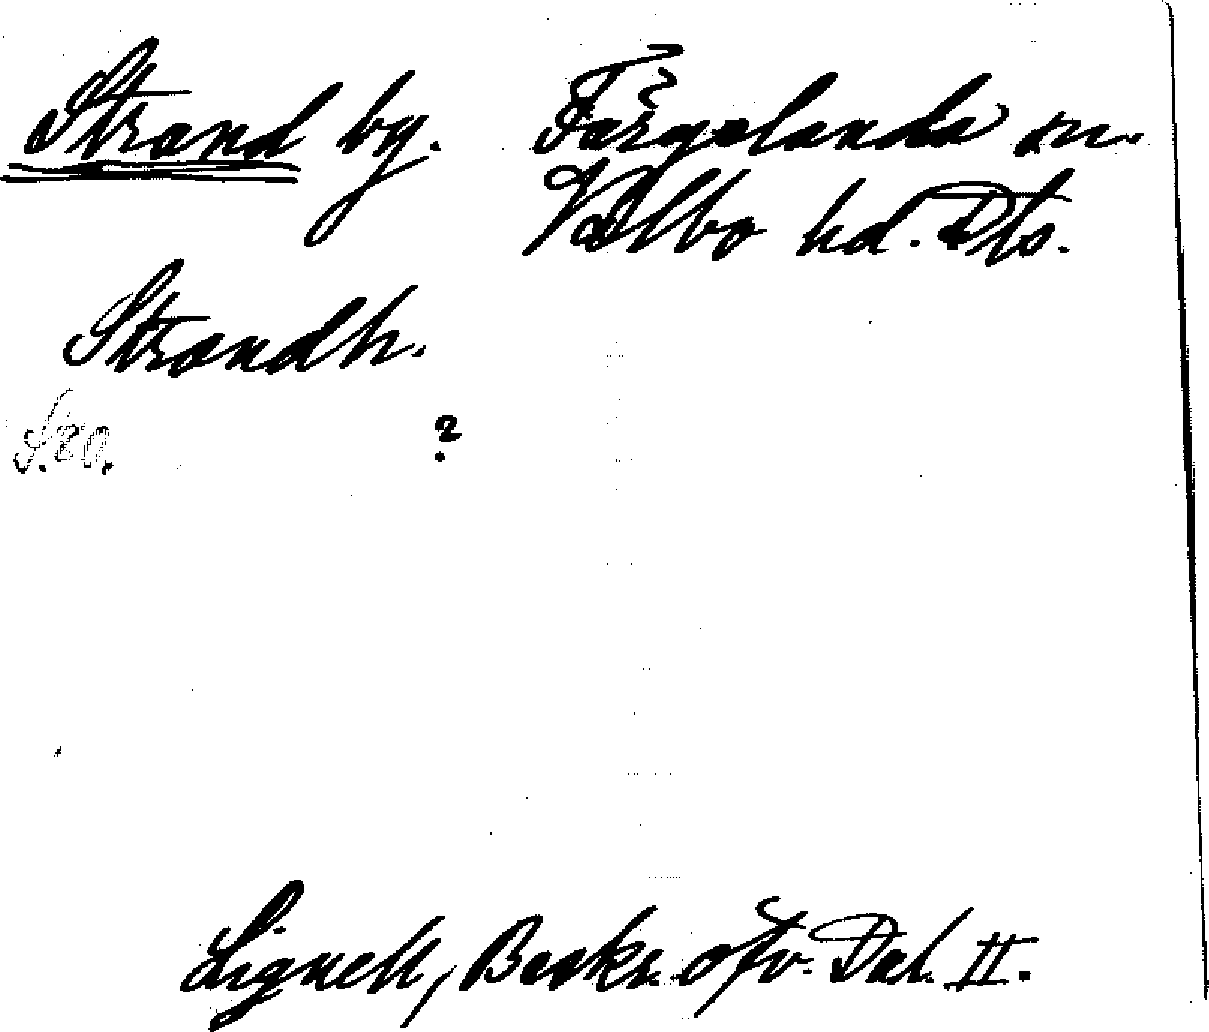 Strand by. Färgelanda sn.
Valbo hd. Dls.
Strandh.
S. 80. ?
Lignell, Beskr. öfv. Dal. II.